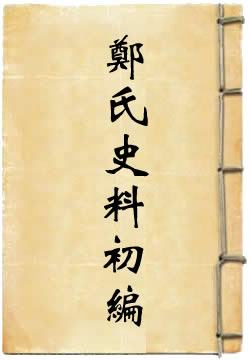 鄭氏史料初編